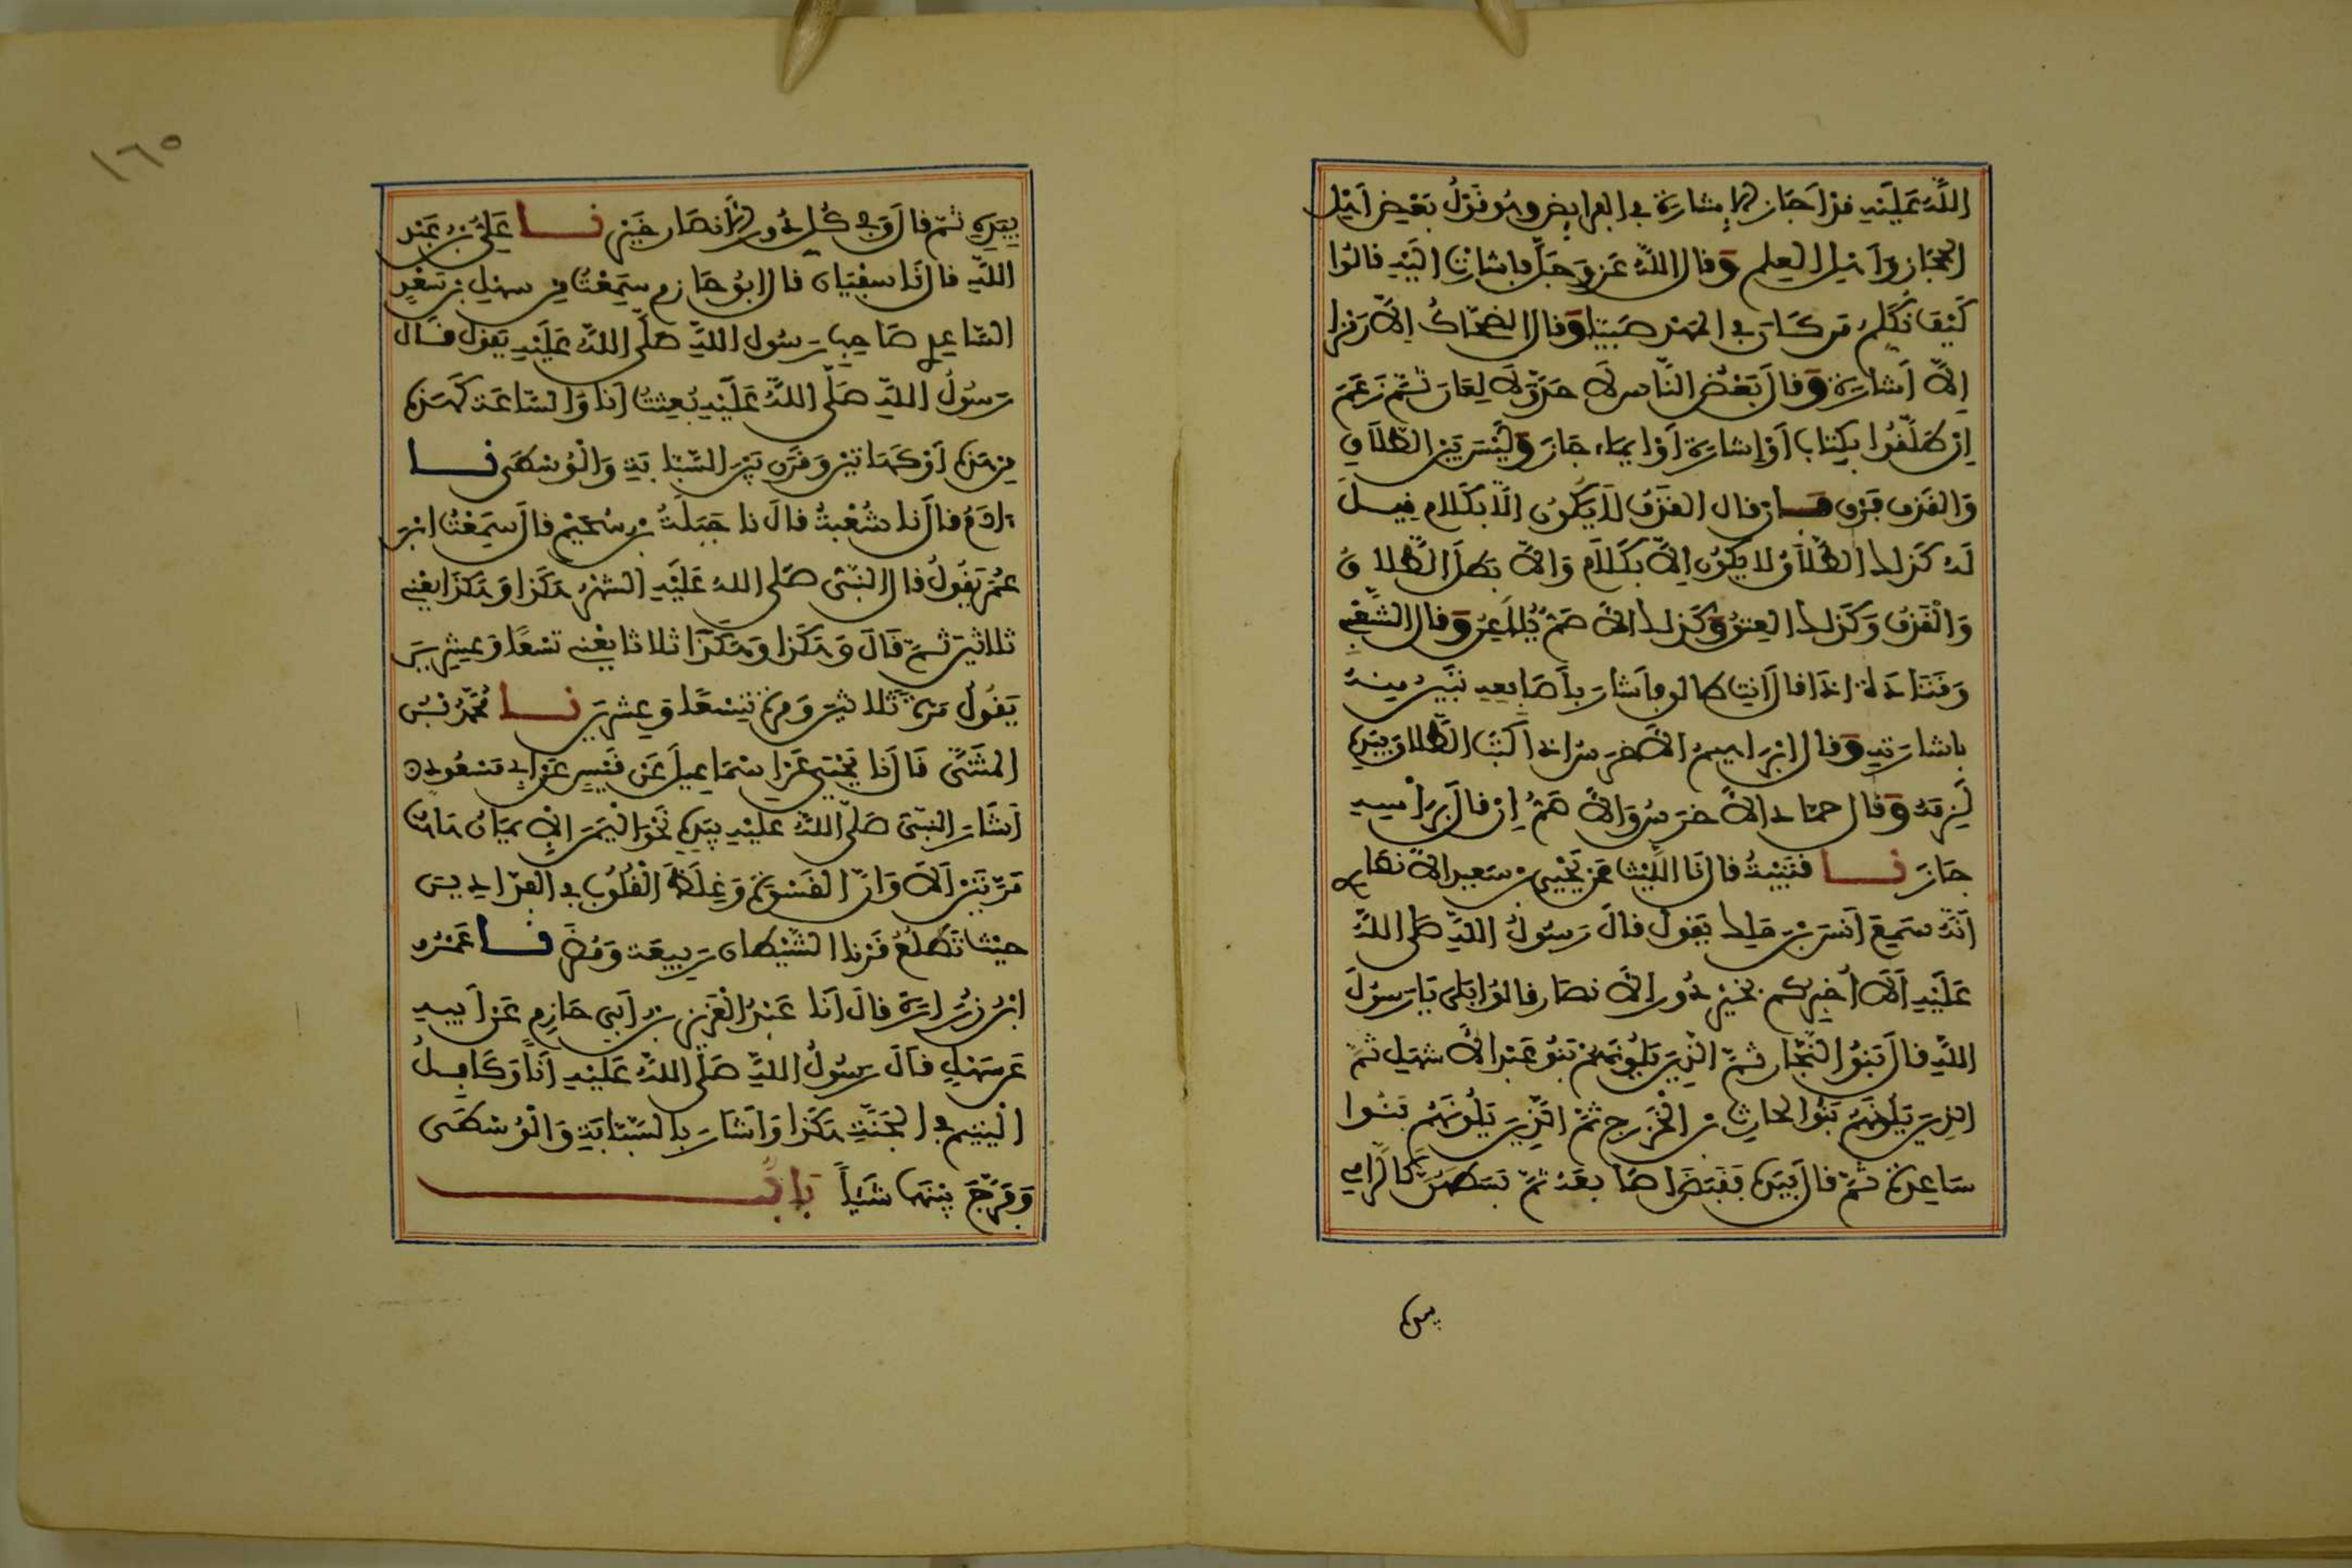 اللَّهُ عَلَيْهِ قَدْ اَجَازَ الاِشَارَةَ فِي الْفَرَايِضِ وَهُوَ قَوْلُ بَعْضِ اَهْلِ
الحِجَازِ وَاَهْلِ العِلْمِ وَقَالَ اللَّهُ عَزَّ وَجَلَّ فَاشَارَتْ اِلَيْهِ قَالُوا
كَيْفَ نُكَلِّمُ مَن كَانَ فِي المَهْدِ صَبِيًّا وَقَالَ الضَّحَّاكُ اِلاَّ رَمْزا
اِلاَّ اَشَارَةً وَقَالَ بَعْضُ النَّاسِ لاَ حَدَّ وَلاَ لِعَانَ ثُمَّ زَعَمَ
اِنْ طَلَّقُوا بِكِتَابٍ اَوْ اِشَارَةٍ اَوْ اِيمَاءٍ جَازَ وَلَيْسَ بَيْنَ الطَّلاَقِ
وَالقَذْفِ فَرْق فَإن قال القَذْفُ لاَ يَكُونُ اِلاَّ بكَلامٍ قِيلَ
لَهُ كَذَلِكَ الطَّلاَقُ لا يَكُونُ اِلاَّ بكَلاَمٍ وَالاَّ بَطَلَ الطَّلاقُ
وَالْقَذْفُ وَكَذَلِكَ العِتْقُ وَكَذَلِكَ الاَصَمُّ يُلاَعِنُ وَقَال الشَّعْبِي
وَقَتَادَةُ اِذَا قَالَ اَنتِ طَالِق فاَشَارَ بِاَصَابِعِهِ تَبِينُ مِنهُ
بِاشَارَتِهِ وَقَال اِبْرَاهِيمُ الاَخْرَسُ اِذَا كَتَبَ الطَّلاقَ بِيَدِهِ
لَزِمَهُ وَقَال حمّاد الاَخْرَسُ وَالاَصَمُّ اِنْ قَالَ بِرَاْسِهِ
جَازَ نا قُتَيْبَةُ قَال نَا اللَّيْثُ عَن يَحْيَى بْن سَعِيد الاَنصَارِي
اَنَّهُ سَمِعَ اَنَسَ بْنَ مَلِك يَقُول قَالَ رَسُولُ اللَّهِ صَلى اللَّهُ
عَلَيْهِ اَلاَ اُخْبِرُكُم بِخَيْرِ دُورِ الاَنصَارِ قَالُوا بَلَى يَا رَسُولَ
اللَّهِ قَالَ بَنُوا النَّجَّارِ ثُمَّ الَّذِينَ يَلُونَهُمْ بَنُو عَبْدِ الاَشْهَلِ ثُمَّ
الذِينَ يَلُونَهُمْ بَنُوا الحَارِثِ بْنِ الْخَزْرَجِ ثُمَّ الَّذِينَ يَلُونَهُمْ بَنُوا
سَاعِدَةَ ثُمَّ قَالَ بِيَدِهِ فَقَبَضَ اَصَابِعَهُ ثُمَّ بَسَطَهُنَّ كَالرَّامِي
بيده
١٦٥
بِيَدِهِ ثُمَّ قَالَ وَفِي كُلِّ دُورِ الاَنصَارِ خَيْر نا عَلِيُّ بْن عَبْدِ
اللَّهِ قَال نَا سفْيَان قَال ابُو حَازِم سَمِعْتُهُ مِن سهْل بْن سَعْدٍ
السَّاعِدي صَاحِبِ رَسُول اللَّهِ صَلَّى اللَّهُ عَلَيْهِ يَقُول قَالَ
رَسُولُ اللَّهِ صَلَّى اللَّهُ عَلَيْهِ بُعِثْتُ اَنَا وَالسَّاعَةَ كَهَذِهِ
مِن هَذِهِ اَوْ كَهَاتَيْنِ وَقَرَنَ بَيْنَ السَّبَّابَةِ وَالْوُسْطَى نا
ءادَمُ قَالَ نا شُعْبَةُ قَالَ نا جَبَلَةُ بْن سُحَيْمٍ قَالَ سَمِعْتُ ابْنَ
عُمَر يَقُولُ قَال النَّبِيُّ صَلى اللهُ عَلَيْهِ الشَّهْرُ هَكَذا وَهَكَذا يَعْنِي
ثلاثينَ ثُمَّ قَالَ وَهَكَذَا وَهَكَذَا ثلاثا يَعْنِي تِسْعًا وَعِشْرِينَ
يَقُولُ مَرَّةً ثَلاثِينَ وَمَرَّةً تِسْعًا وَعِشْرِينَ نا مُحَمَّدُ بْنُ
المثَنَّى قَالَ نَا يَحْيَى عَن اِسْمَاعِيلَ عَن قَيْسٍ عَن اَبِي مَسْعُودٍ
اَشَارَ النَّبِيّ صَلَّى اللَّهُ عَلَيْهِ بِيَدِهِ نَحْوَ اليَمَنِ الاِيمَانُ هَاهُنَا
مَرَّتَيْنِ اَلاَ وَاِنَّ القَسْوَةَ وَغِلَظَ الْقُلُوبِ فِي الْفَدَّادِينَ
حَيْثُ تَطْلُعُ قَرْنَا الشَّيْطَانِ رَبِيعَةَ وَمُضَرَ نا عَمْرُو
ابْنُ زُرَارَةَ قَالَ اَنَا عَبْدُ الْعَزِيزِ بْن اَبِي حَازِمٍ عَن اَبِيهِ
عَن سَهْلٍ قَالَ رَسُولُ اللَّهِ صَلَّى اللَّهُ عَلَيْهِ اَنَا وَكَافِلُ
الْيَتِيمِ فِي الجَنَّةِ هَكَذَا وَاَشَارَ بِالسَّبَّابَةِ وَالْوُسْطَى
وَفَرَّجَ بَيْنَهُمَا شَيْئاً بَابُ